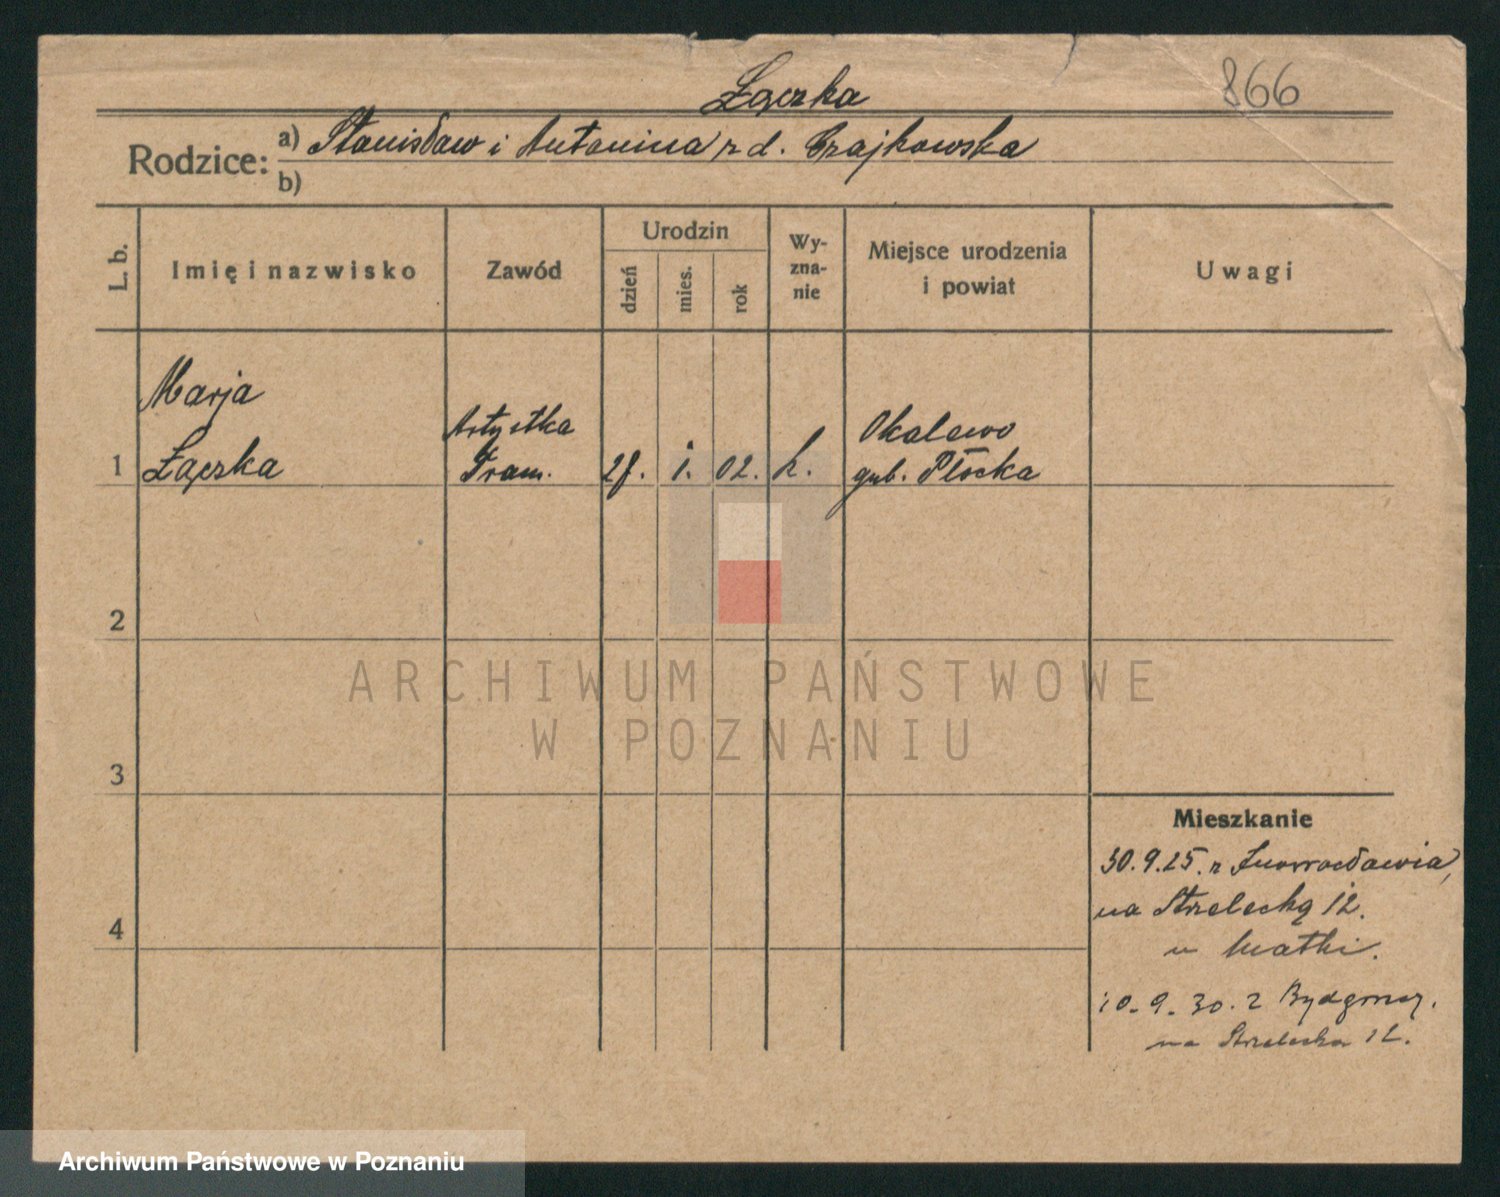 Łączka
866
Rodzice:
a) Stanisław i Antonina z d. Czajkowska
b)
L. b.
Imię i nazwisko
Zawód
Urodzin
dzień
mies.
rok
Wy-
zna-
nie
Miejsce urodzenia
i powiat
Uwagi
Marja
1 Łączka
Artystka
Dram.
i. 02.
k.
Okalewo
gub. Płocka
2
ARCHIWUM PAŃSTWOWE
W POZNANIU
3
Mieszkanie
30.9.25. z Inowrocławia,
na Strzelecką 12.
u Matki.
4
10.9.30. z Bydgoszcz.
na Strzelecka 12.
Archiwum Państwowe w Poznaniu